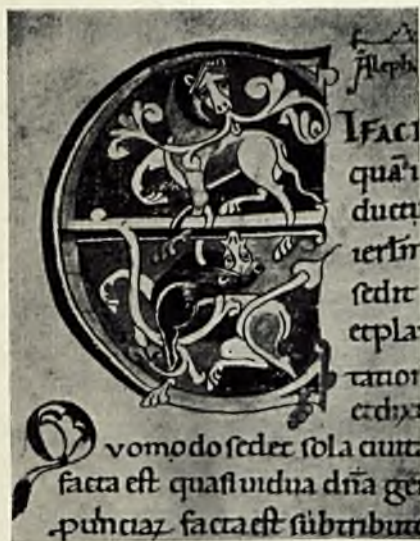 Aleph
E
IFAC
qua i
duct
ierlm
sedit
etpla
tation
etdixi
Quomodo sedet sola ciuita
facta est quasi uidua dña ge
puinciaꝝ facta est subtribut